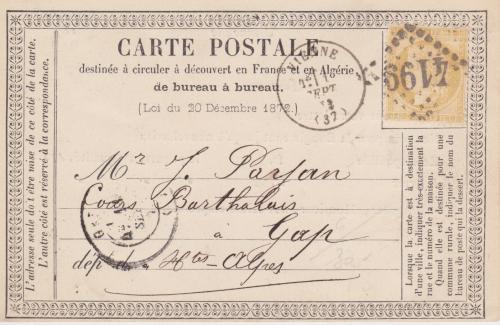 CARTE POSTALE
destinée à circuler à découvert en France et en Algérie
de bureau à bureau.
(Loi du 20 Décembre 1872.)
VIENNE
SEPT
(37)
4199
L'adresse seule doit être mise de ce côté de la carte.
L'autre côté est réservé à la correspondance.
Mr J. Parjan
Cours
à
Gap
dépt de Htes Alpes
Lorsque la carte est à destination
d'une ville, indiquer très-exactement la
rue et le numéro de la maison.
Quand elle est destinée pour une
commune rurale, indiquer le nom du
bureau de poste qui la dessert.